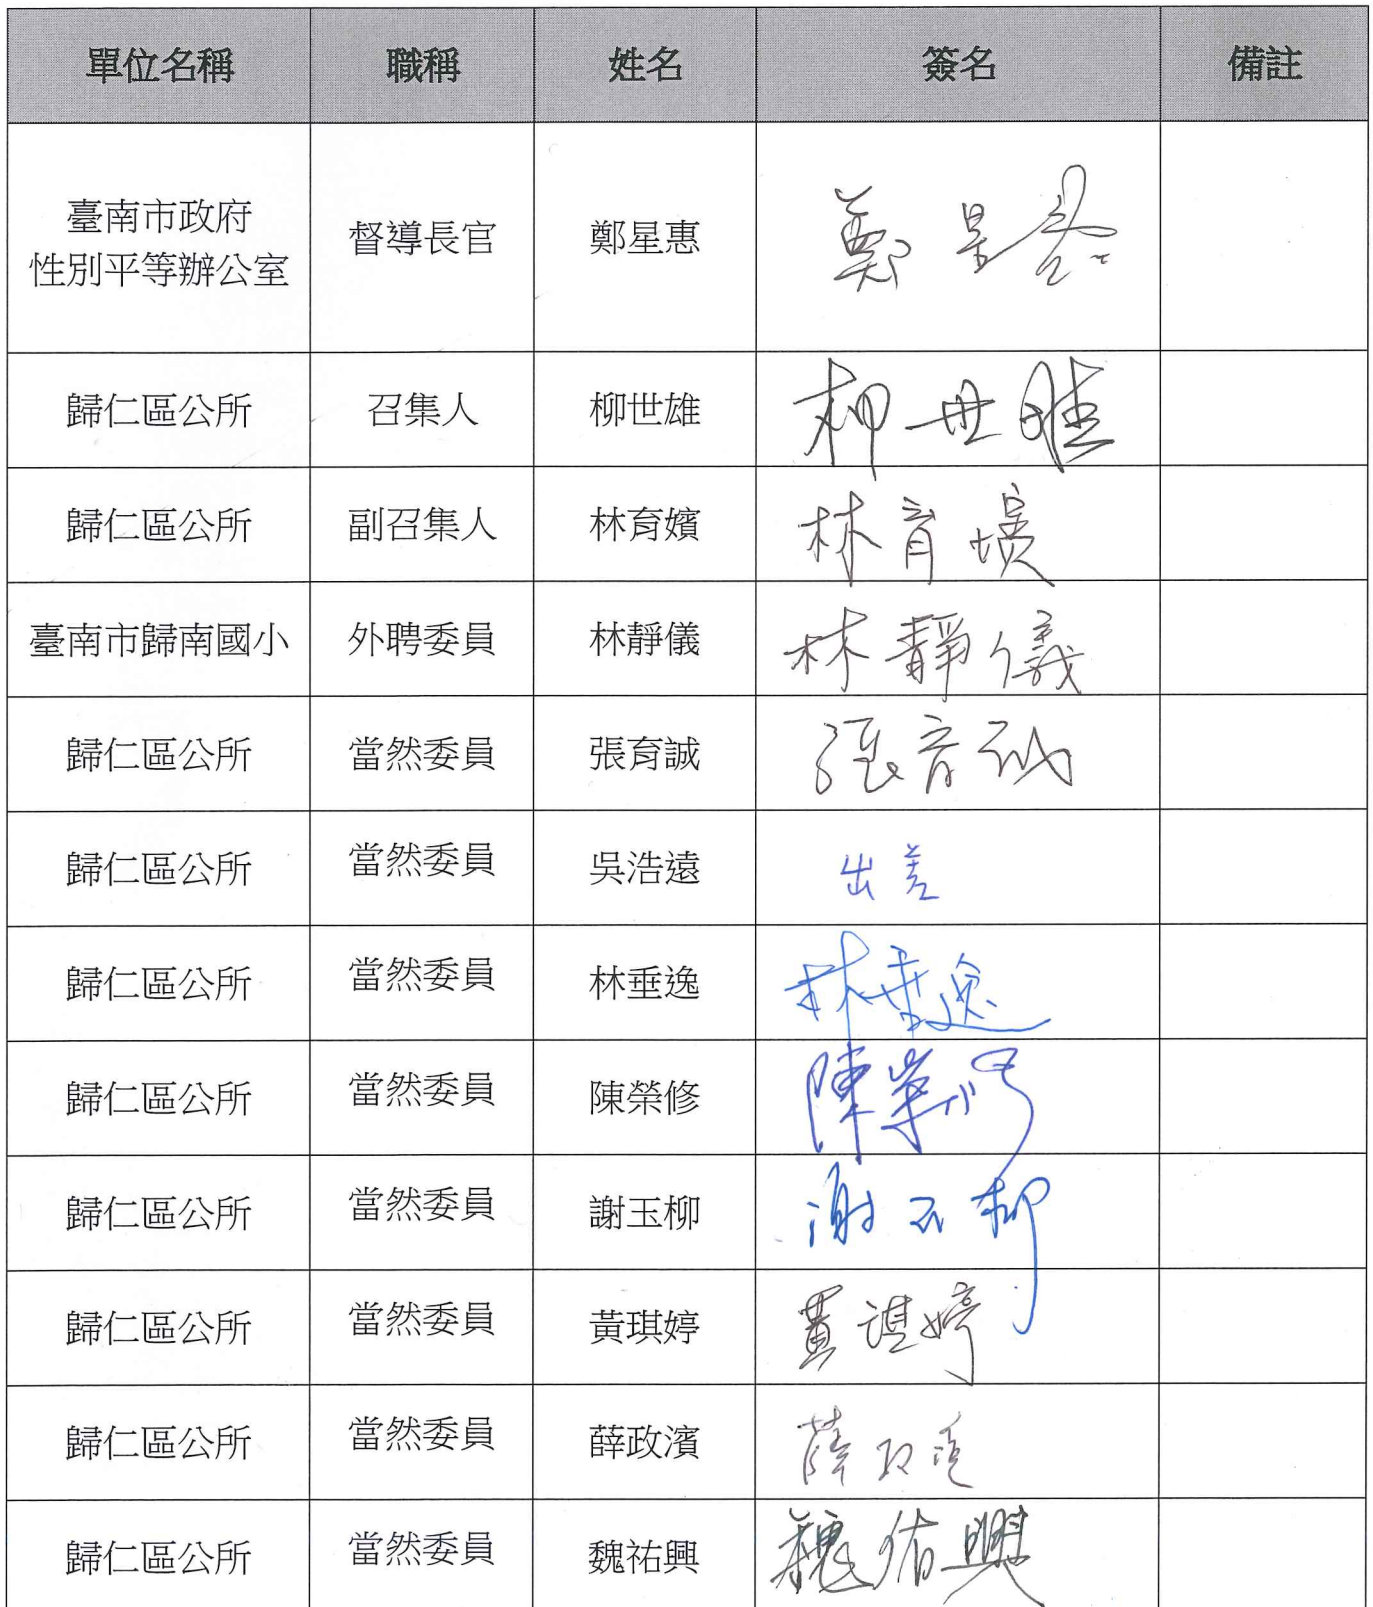 單位名稱 職稱 姓名 簽名 備註
臺南市政府
性別平等辦公室 督導長官 鄭星惠 鄭星惠
歸仁區公所 召集人 柳世雄 柳世雄
歸仁區公所 副召集人 林育嬪 林育嬪
臺南市歸南國小 外聘委員 林靜儀 林靜儀
歸仁區公所 當然委員 張育誠 張育誠
歸仁區公所 當然委員 吳浩遠 出差
歸仁區公所 當然委員 林垂逸 林垂逸
歸仁區公所 當然委員 陳榮修 陳榮修
歸仁區公所 當然委員 謝玉柳 謝玉柳
歸仁區公所 當然委員 黃琪婷 黃琪婷
歸仁區公所 當然委員 薛政濱 薛政濱
歸仁區公所 當然委員 魏祐興 魏祐興